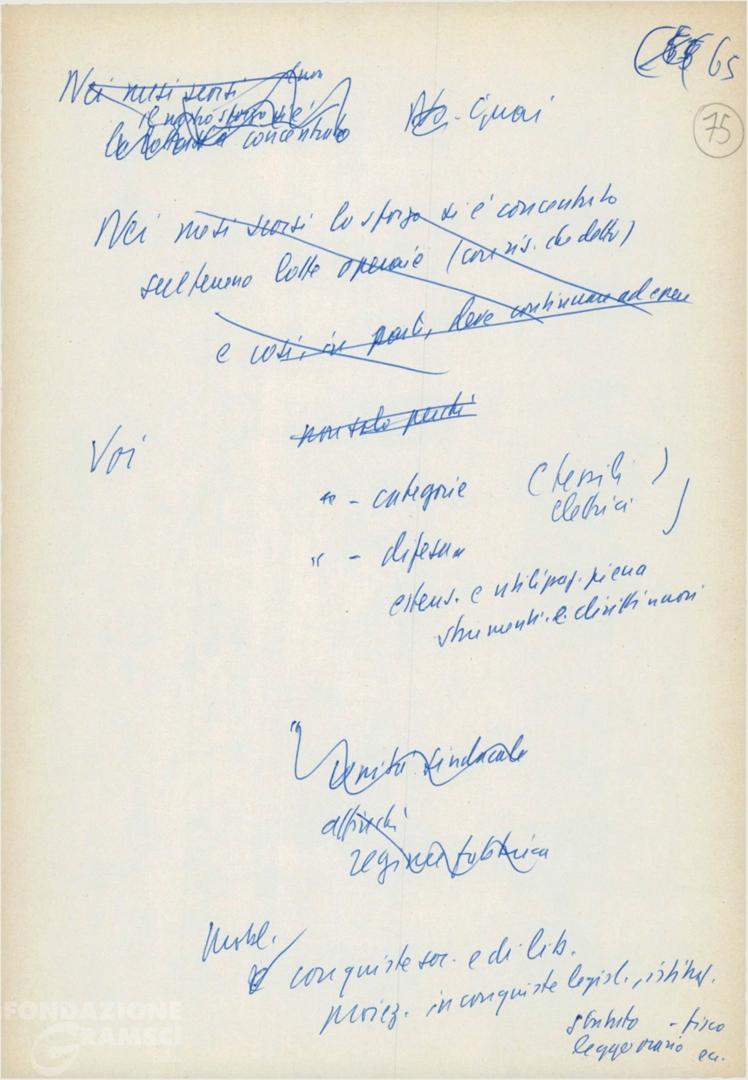 65
75
Nei mesi scorsi
il nostro sforzo si è
concentrato
Nei mesi scorsi lo sforzo si è concentrato
sul terreno lotte operaie (con ris. che detto)
e così, in parte, deve continuare ad essere
non solo perché
Voi
" - categorie (tessili)
elettrici
" - difesa
estens. e utilizzaz. piena
strumenti e diritti nuovi
Unità sindacale
affinché
regime fabbrica
Mobil.
conquiste soc. e di lib.
proiez. in conquiste legisl., istituz.
statuto - fisco
legge orario ecc.
FONDAZIONE
GRAMSCI